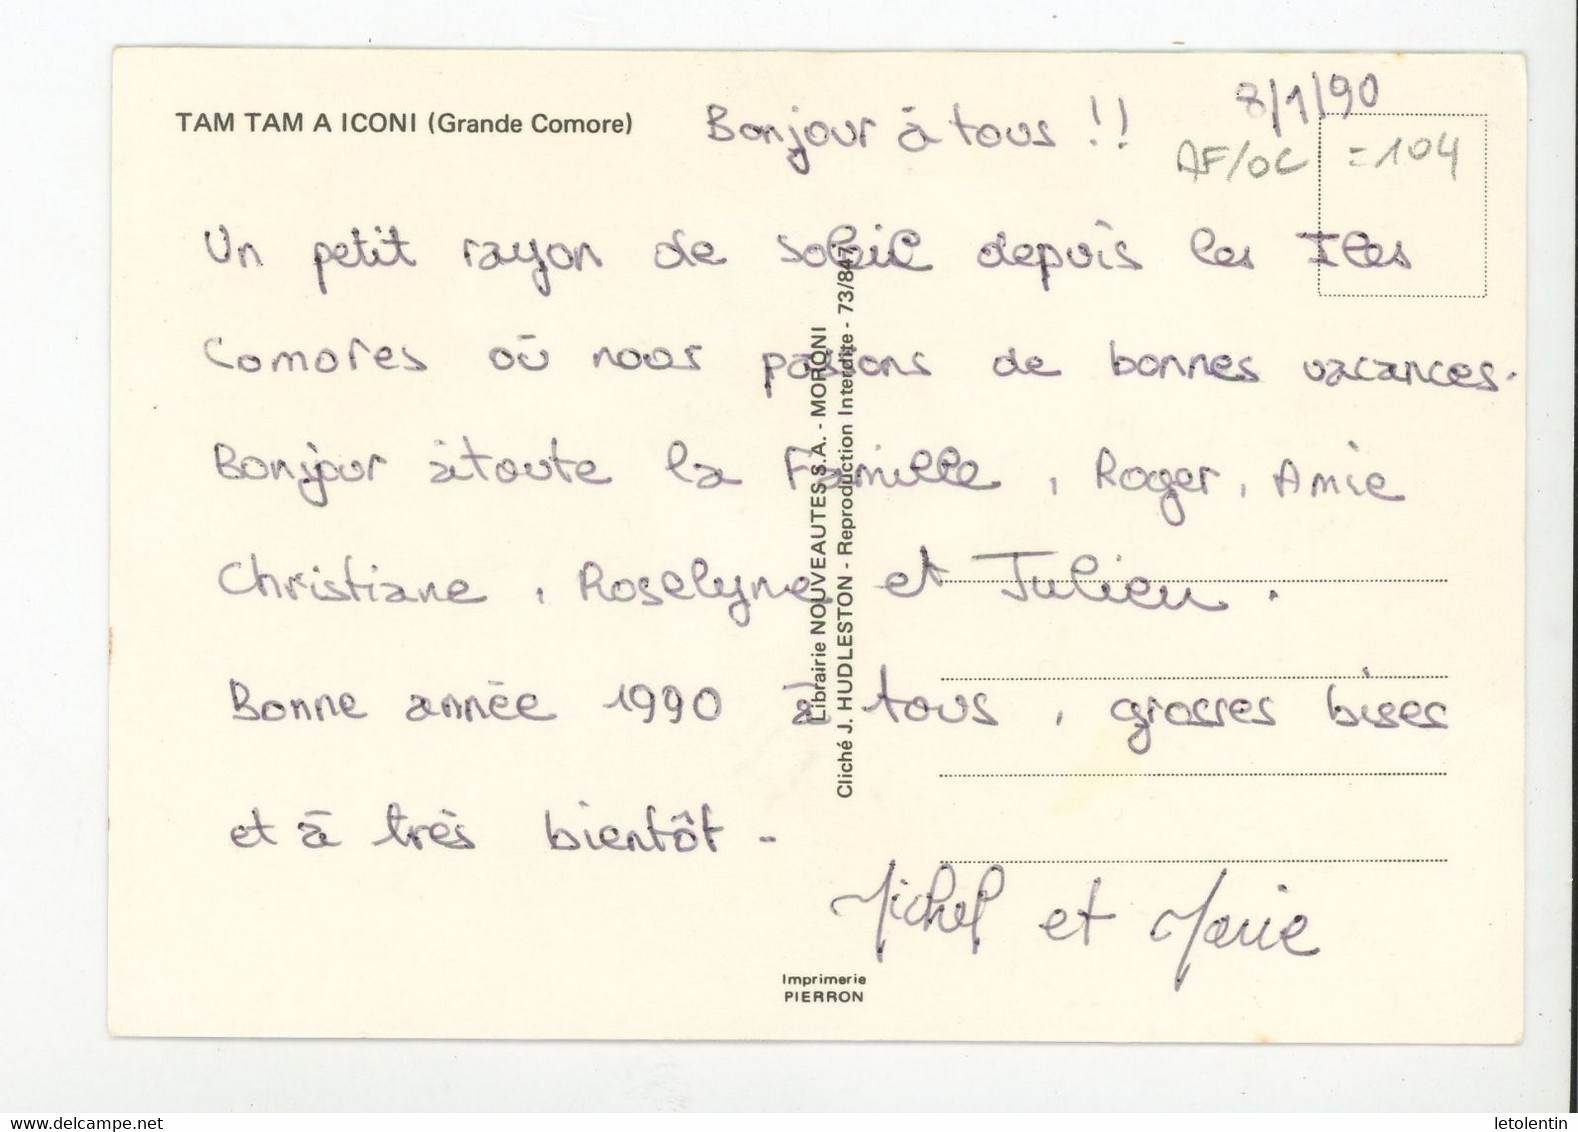 TAM TAM A ICONI (Grande Comore)
8/1/90
Bonjour à tous !!
AF/OC =104
Un petit rayon de soleil depuis les Iles
Comores où nous passons de bonnes vacances.
Bonjour à toute la Famille, Roger, Amie
Christiane, Roselyne et Julien.
Bonne année 1990 à tous, grosses bises
et à très bientôt -
Michel et Marie
Librairie NOUVEAUTES S.A. - MORONI
Cliché J. HUDLESTON - Reproduction Interdite - 73/847
Imprimerie
PIERRON
www.delcampe.net
letolentin